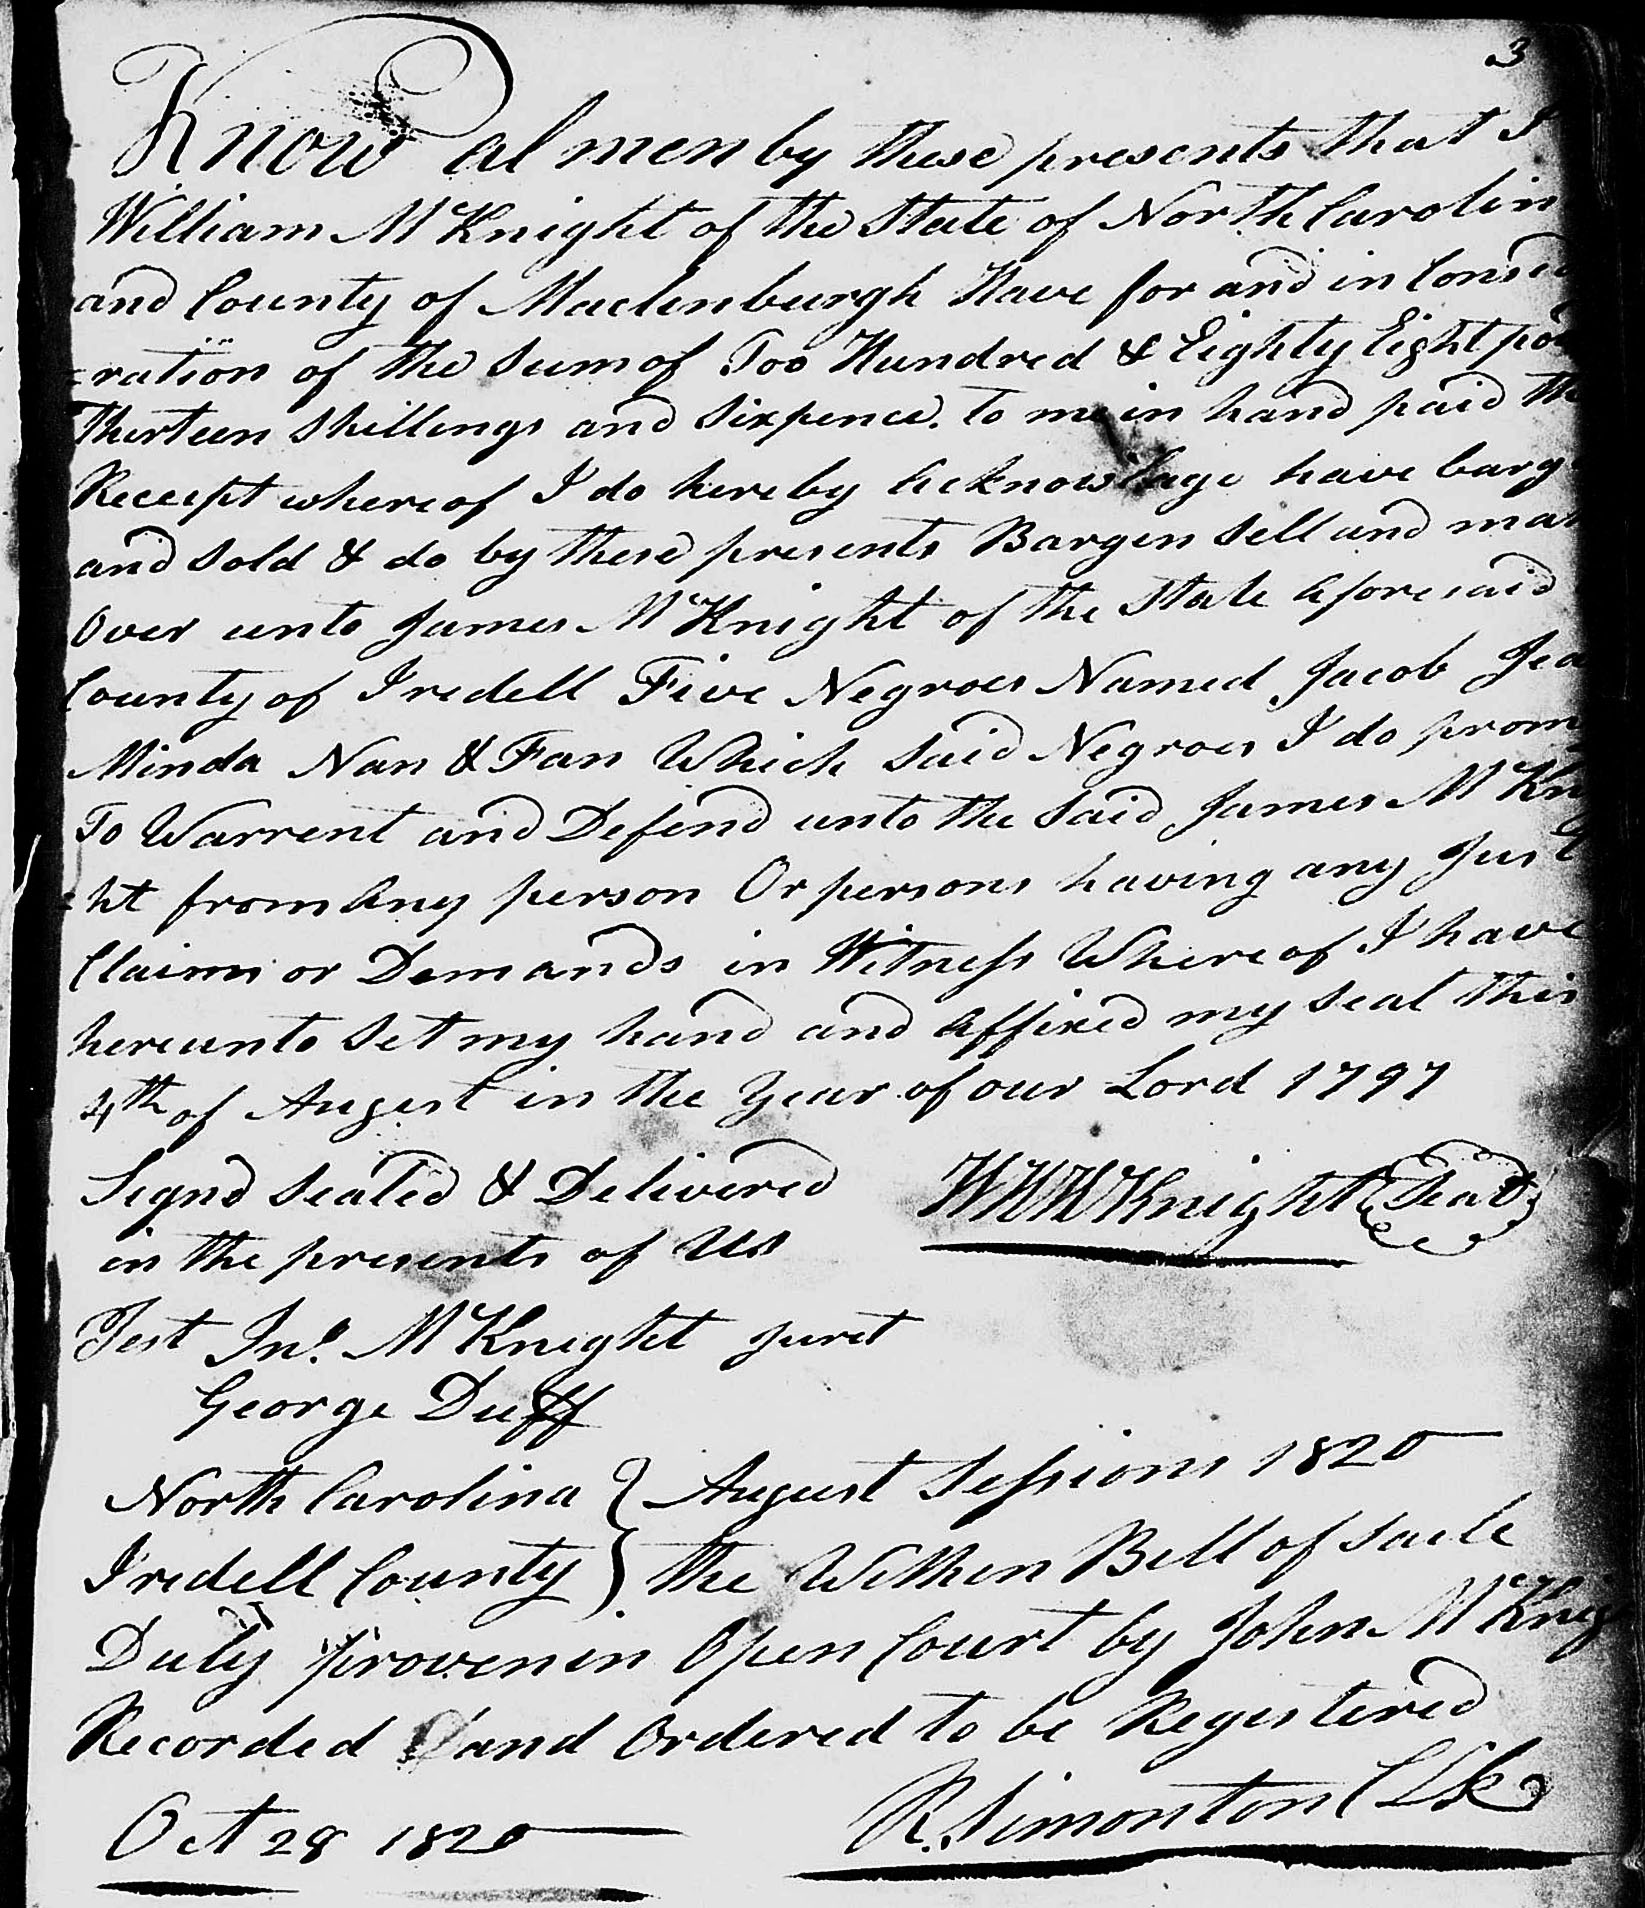 3
Know al men by these presents that I
William McKnight of the State of North Carolin
and County of Maclenburgh Have for and in Consid
=ration of the Sum of Too Hundred & Eighty Eight pou
Thirteen Shillings and Sixpence. To me in hand paid the
Receipt whereof I do hereby acknowlage have barg
and Sold & do by these presents Bargen Sell and mak
Over unto James McKnight of the State aforesaid
County of Iredell Five Negroes Named Jacob Jea
Minda Nan & Fan Which Said Negroes I do prom
To Warrent and Defend unto the Said James McKni
=ht from any person Or persons having any Just
Claims or Demands in Witness Whereof I have
hereunto Set my hand and affixed my Seal this
4th of August in the Year of our Lord 1797
Signd Sealed & Delivered WM McKnight Seal
in the presents of Us
Test Jno. McKnight jurat
George Duff
North Carolina } August Sessions 1820
Iredell County } the Within Bill of Saile
Duly proven in Open Court by John McKnig
Recorded and Ordered to be Registered
Oct 28 1820 R. Simonton Clk